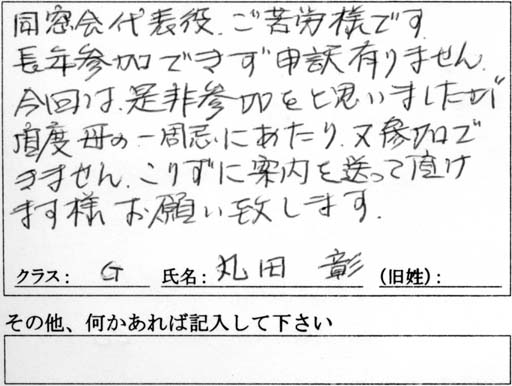 同窓会代表役、ご苦労様です。
長年参加できず申訳有りません。
今回は、是非参加をと思いましたが
頂度母の一周忌にあたり、又参加で
きません。こりずに案内を送って頂け
ます様お願い致します。
クラス： G 氏名： 丸田 彰 (旧姓)：
その他、何かあれば記入して下さい